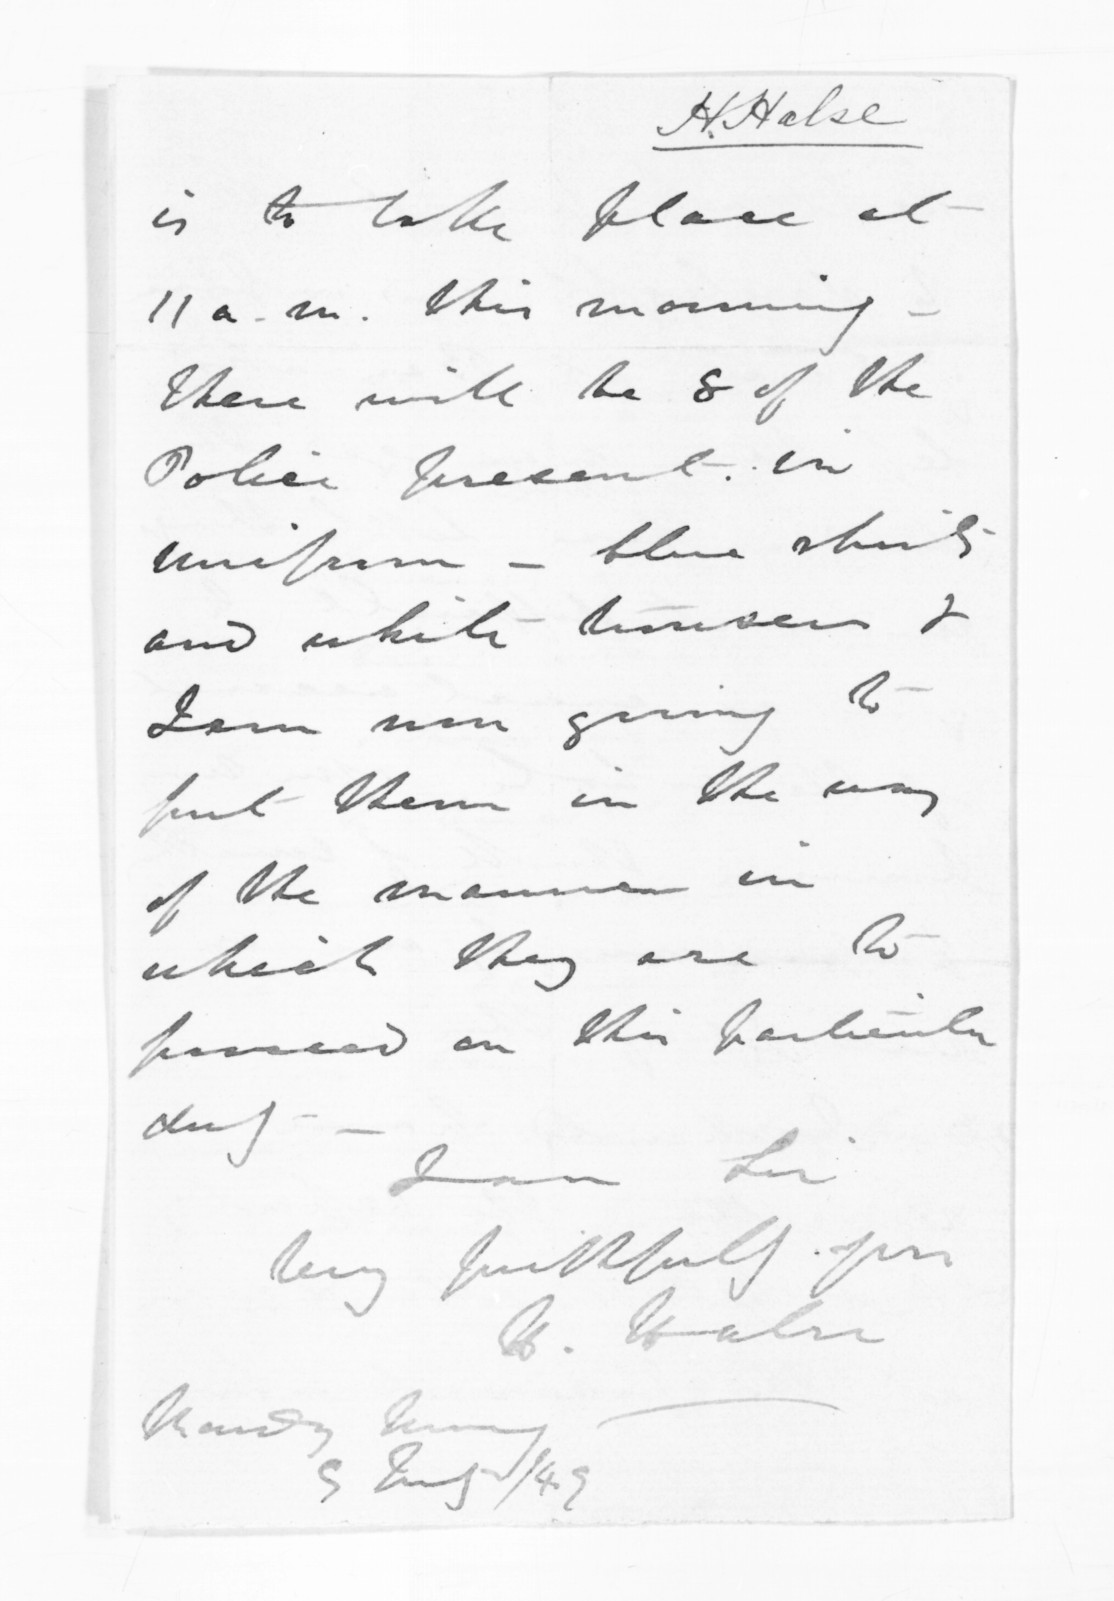 H. Halse
is to take place at
11 a.m. this morning –
There will be 8 of the
Police present in
uniform – blue shirts
and white trousers &
I am now going to
put them in the way
of the manner in
which they are to
proceed on this particular
duty –
I am Sir
Very faithfully yrs
H. Halse
Monday Morng
9 July /49